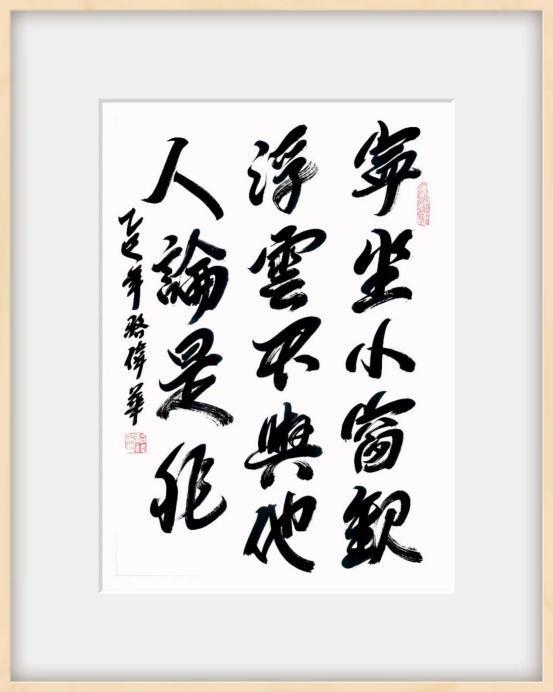 寧坐小窗觀
浮雲不與他
人論是非
乙巳年 駱偉華